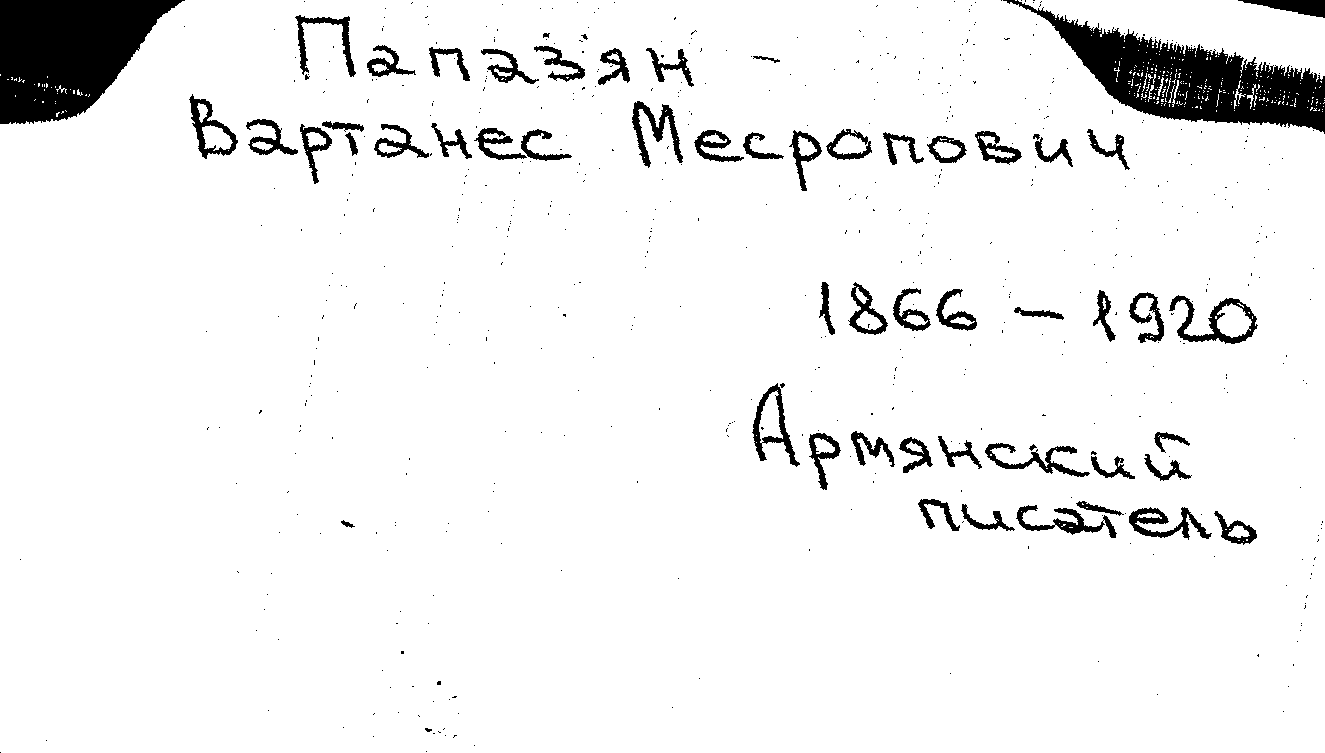 Папазян -
Вартанес Месропович
1866 – 1920
Армянский
писатель